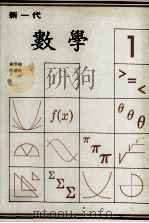 新一代
數學
1
> =
<
f(x)
θ θ θ
π π π π
Σ Σ Σ